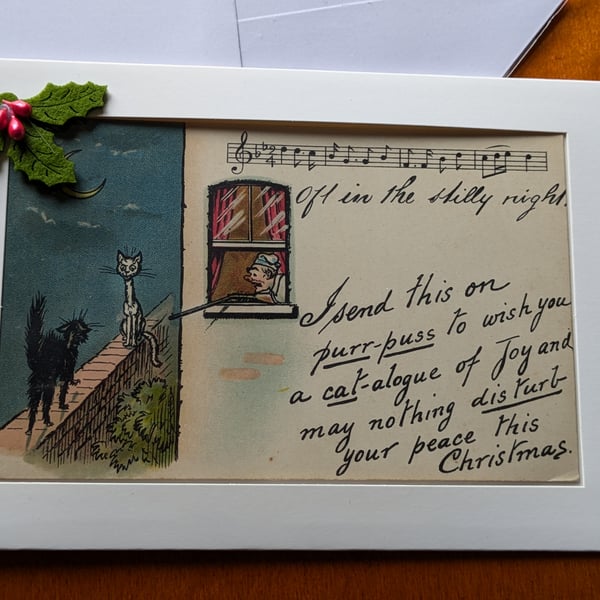 Oft in the stilly night.
I send this on
purr-puss to wish you
a cat-alogue of Joy and
may nothing disturb
your peace this
Christmas.